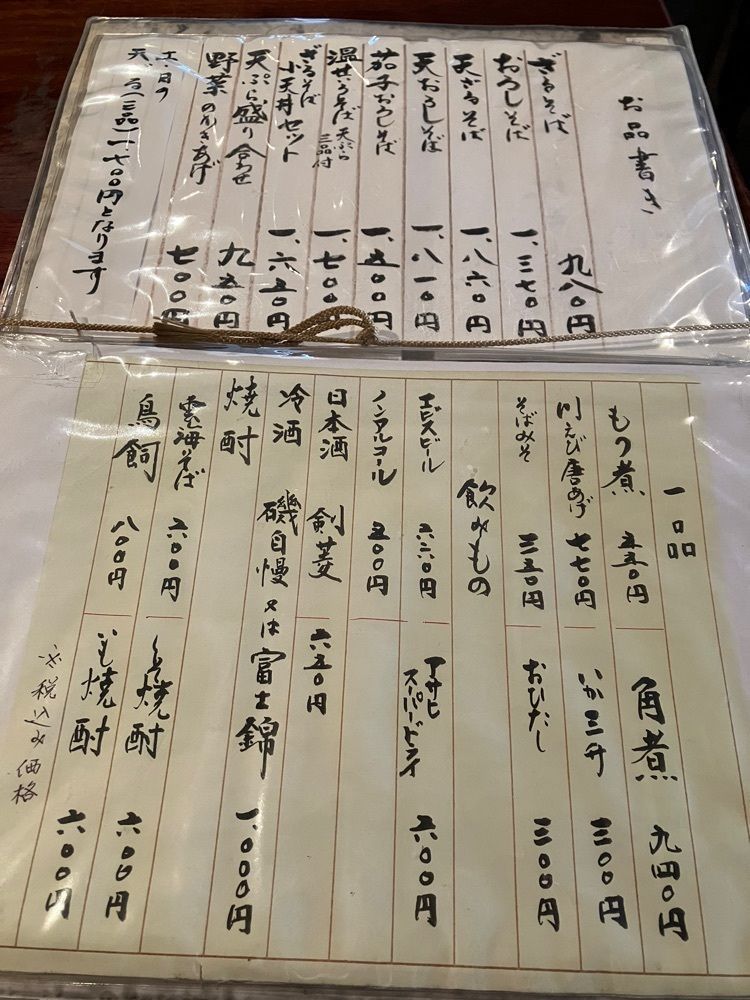 お品書き
ざるそば 九八〇円
おろしそば 一、三七〇円
天ざるそば 一、八六〇円
天おろしそば 一、八一〇円
茄子おろしそば 一、五〇〇円
温せいろそば 天ぷら三品付 一、七〇〇円
ざるそば
小天丼セット 一、六五〇円
天ぷら盛り合わせ 九五〇円
野菜のかきあげ 七〇〇円
土、日の
天、
(三品)一、七〇〇円となります
一品
もつ煮 五五〇円
角煮 九四〇円
川えび唐あげ 七七〇円
いか三升 三〇〇円
そばみそ 三五〇円
おひたし 三〇〇円
飲みもの
エビスビール 六六〇円
アサヒスーパードライ 六〇〇円
ノンアルコール 五〇〇円
日本酒 剣菱 六五〇円
冷酒 磯自慢又は富士錦 一、〇〇〇円
焼酎
雲海そば 六〇〇円
焼酎 六〇〇円
鳥飼 八〇〇円
いも焼酎 六〇〇円
※税込み価格